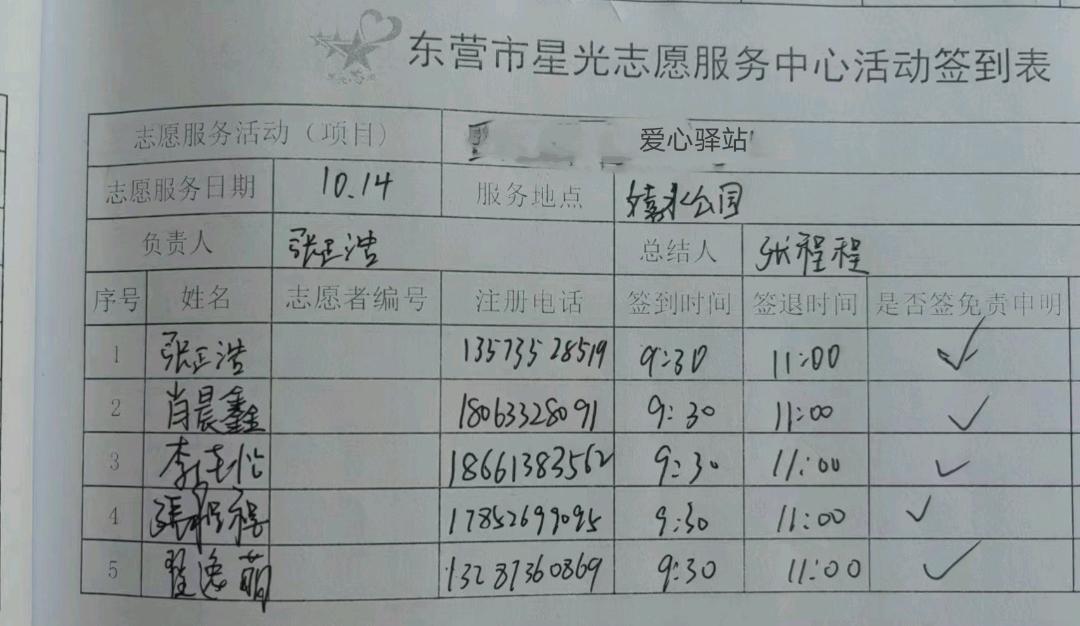 东营市星光志愿服务中心活动签到表
志愿服务活动（项目） 爱心驿站
志愿服务日期 10.14 服务地点 公园
负责人 张正浩 总结人 张程程
序号 姓名 志愿者编号 注册电话 签到时间 签退时间 是否签免责申明
1 张正浩 13573528519 9:30 11:00 ✓
2 肖晨鑫 18063328091 9:30 11:00 ✓
3 李 18661383562 9:30 11:00 ✓
4 张程程 17852699095 9:30 11:00 ✓
5 翟逸萌 13287360869 9:30 11:00 ✓